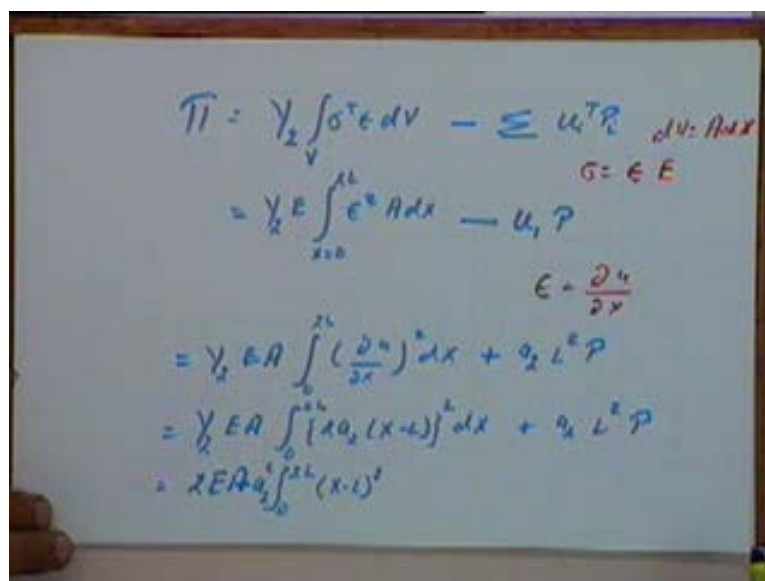 Π = 1/2 ∫_V σ^T ε dV - Σ u_i^T P_i dV = A dx
σ = ε E
= 1/2 E ∫_{x=0}^{2L} ε^2 A dx - u_1 P
ε = ∂u/∂x
= 1/2 EA ∫_0^{2L} (∂u/∂x)^2 dx + a_2 L^2 P
= 1/2 EA ∫_0^{2L} {2a_2 (x-L)}^2 dx + a_2 L^2 P
= 2EA a_2^2 ∫_0^{2L} (x-L)^2